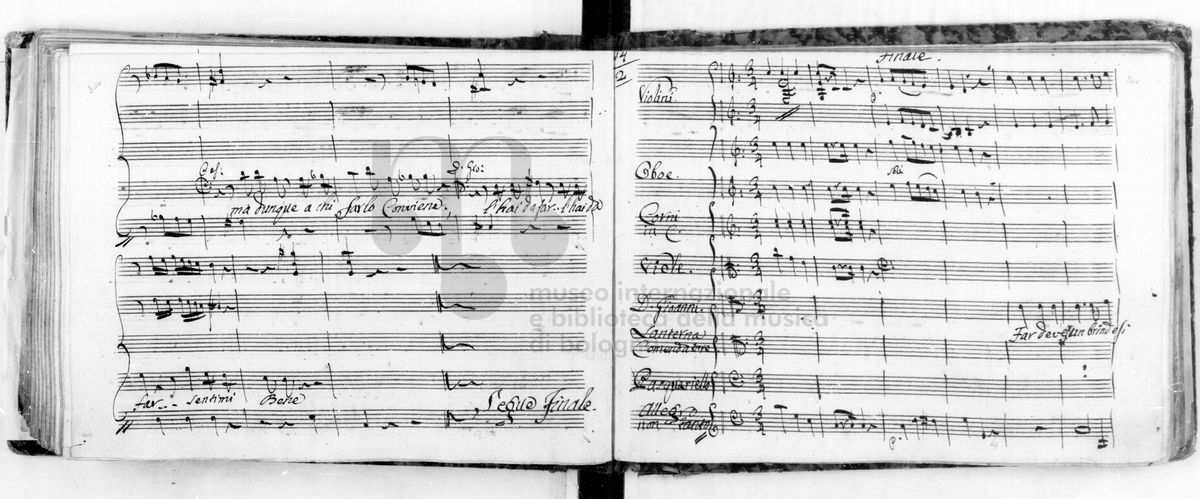 Ces:
D. Gio:
ma dunque a chi farlo Conviene
l'hai da far.. l'hai da
far.. sentimi Bene
Segue Finale.
14
2
Finale.
Violini
Oboe.
soli
Corni
in C.
Viole.
D. Gioanni
Far deve si un brindesi
Lanterna
Comendatore
Pasquariello
Allegro
non tanto
museo internazionale
e biblioteca della musica
di bologna